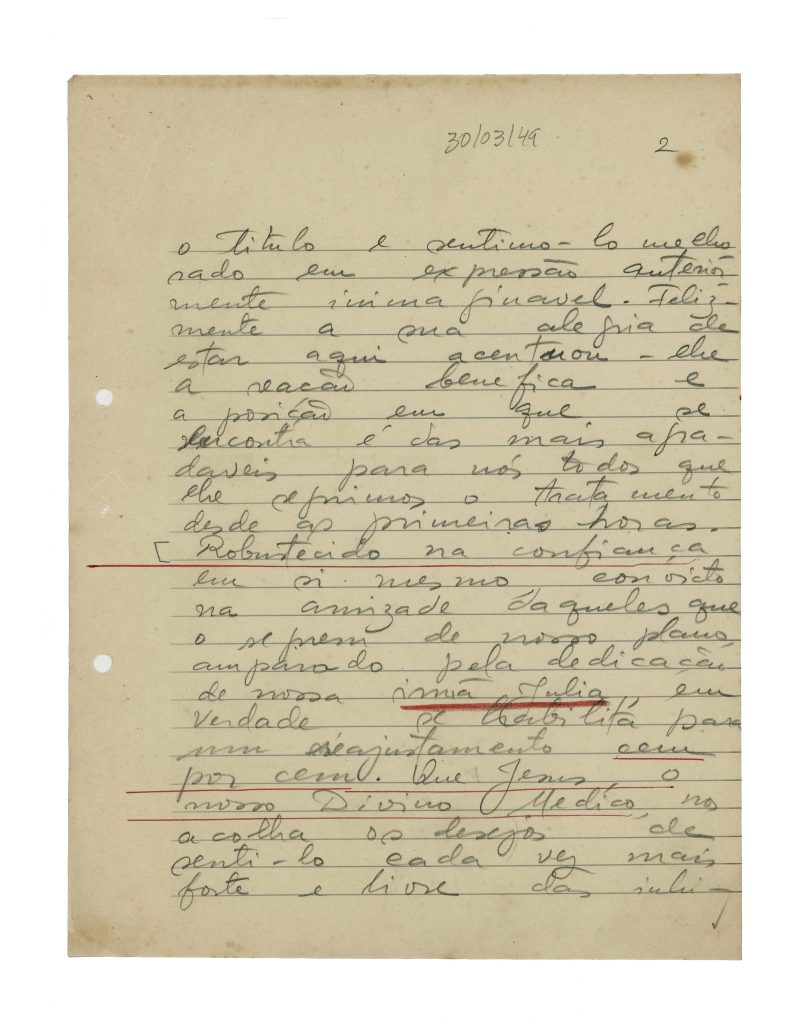 30/03/49
2
o titulo e sentimo-lo melho
rado em expressão anterior
mente inimaginavel. Feliz-
mente a sua alegria de
estar aqui acentuou-lhe
a reacão benefica e
a posição em que se
encontra é das mais agra-
daveis para nós todos que
lhe seguimos o tratamento
desde as primeiras horas.
[ Robustecido na confiança
em si mesmo convicto
na amizade daqueles que
o seguem de nosso plano,
amparado pela dedicacão
de nossa irmã Julia, em
verdade se habilita para
um reajustamento cem
por cem. Que Jesus, o
nosso Divino Medico, nos
acolha os desejos de
senti-lo cada vez mais
forte e livre das inhi-